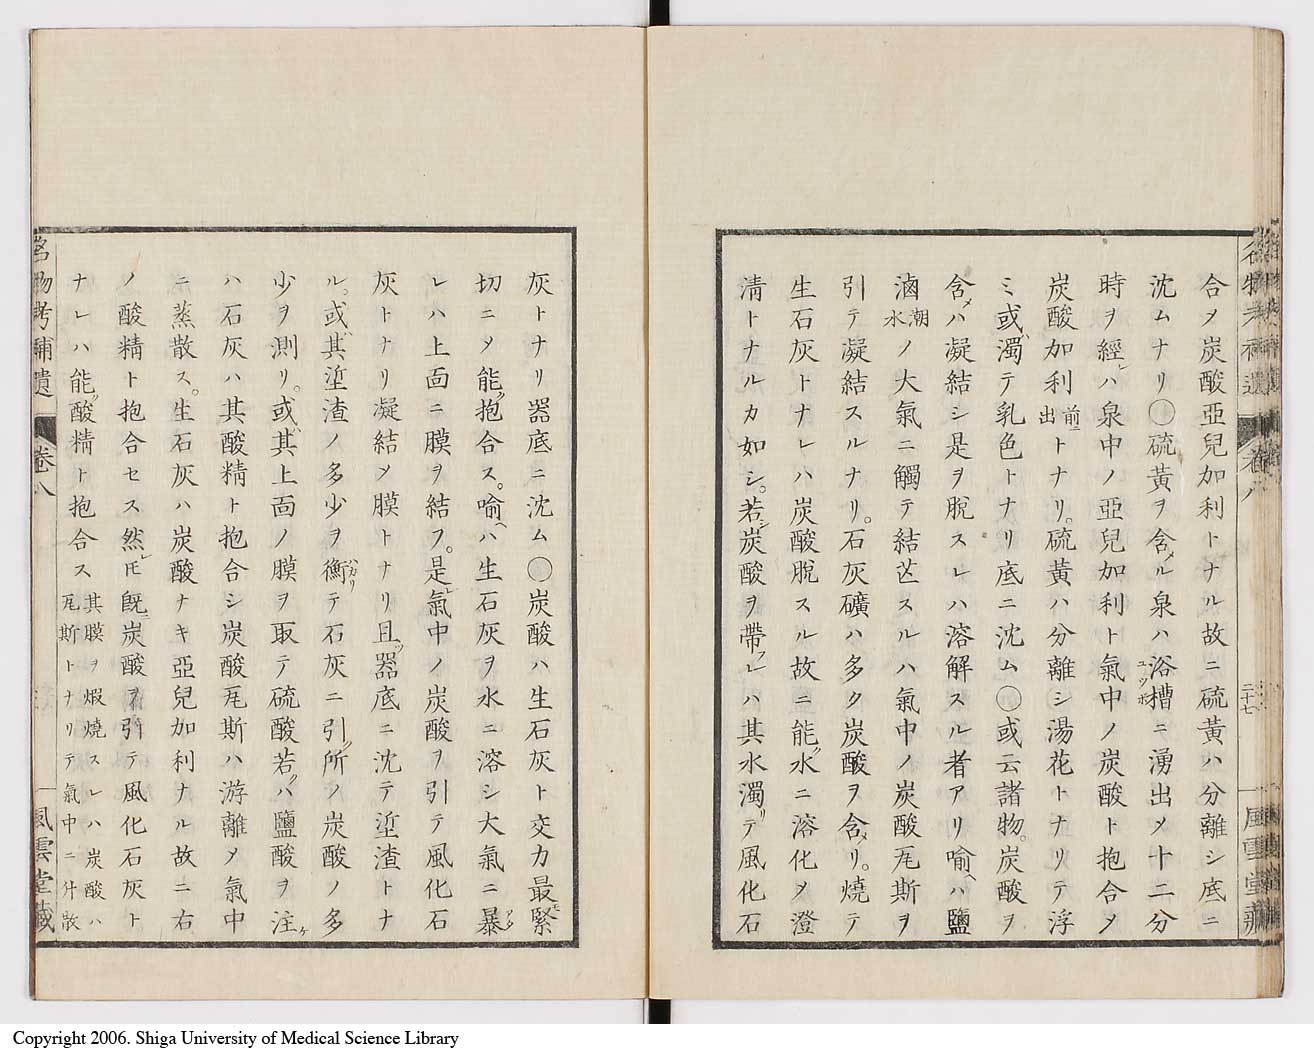 合メ炭酸亞兒加利トナル故ニ硫黃ハ分離シ底ニ
沈ムナリ○硫黃ヲ含メル泉ハ浴槽ユツボニ湧出メ十二分
時ヲ經レハ泉中ノ亞兒加利ト氣中ノ炭酸ト抱合メ
炭酸加利前ニ出トナリ。硫黃ハ分離シ湯花トナリテ浮
ミ或ハ濁テ乳色トナリ底ニ沈ム○或云諸物。炭酸ヲ
含メハ凝結シ是ヲ脫スレハ溶解スル者アリ喻ヘハ鹽
滷潮水ノ大氣ニ觸テ結芒スルハ氣中ノ炭酸瓦斯ヲ
引テ凝結スルナリ。石灰礦ハ多ク炭酸ヲ含メリ。燒テ
生石灰トナレハ炭酸脫スル故ニ能ク水ニ溶化メ澄
淸トナルカ如シ。若シ炭酸ヲ帶フレハ其水濁リテ風化石
名物考補遺 卷八 二十七 風雲堂藏
灰トナリ器底ニ沈ム○炭酸ハ生石灰ト交力最モ緊
切ニメ能ク抱合ス。喻ヘハ生石灰ヲ水ニ溶シ大氣ニ暴アタ
レハ上面ニ膜ヲ結フ。是レ氣中ノ炭酸ヲ引テ風化石
灰トナリ凝結メ膜トナリ且ツ器底ニ沈テ埿渣トナ
ル。或ハ其埿渣ノ多少ヲ衡ハカリテ石灰ニ引ク所ノ炭酸ノ多
少ヲ測リ。或ハ其上面ノ膜ヲ取テ硫酸若クハ鹽酸ヲ注ケ
ハ石灰ハ其酸精ト抱合シ炭酸瓦斯ハ游離メ氣中
ニ蒸散ス。生石灰ハ炭酸ナキ亞兒加利ナル故ニ右
ノ酸精ト抱合セス然レ𪜈旣ニ炭酸ヲ引テ風化石灰ト
ナレハ能ク酸精ト抱合ス其膜ヲ煆燒スレハ炭酸ハ瓦斯トナリテ氣中ニ升散
名物考補遺 卷八 風雲堂藏
Copyright 2006. Shiga University of Medical Science Library